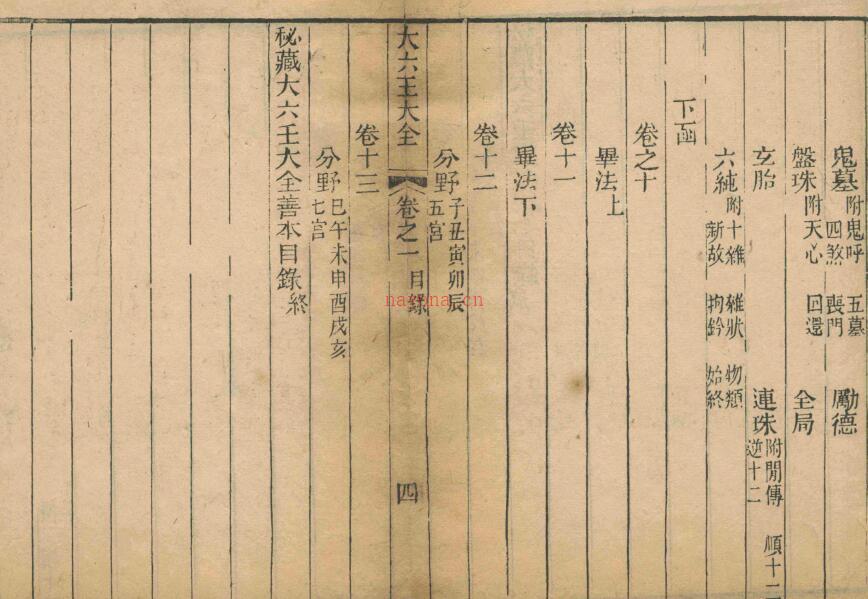 鬼墓 附鬼呼 五墓 四煞 喪門 勵德
盤珠 附天心 回還 全局
玄胎 連珠 附閒傳 順十二 逆十二
六純 附十雜 雜狀 物類 新故 拘鈐 始終
下函
卷之十
畢法上
卷十一
畢法下
卷十二
分野 子丑寅卯辰 五宮
大六壬大全 卷之一 目錄 四
卷十三
分野 巳午未申酉戌亥 七宮
秘藏大六壬大全善本目錄 終
nayona.cn